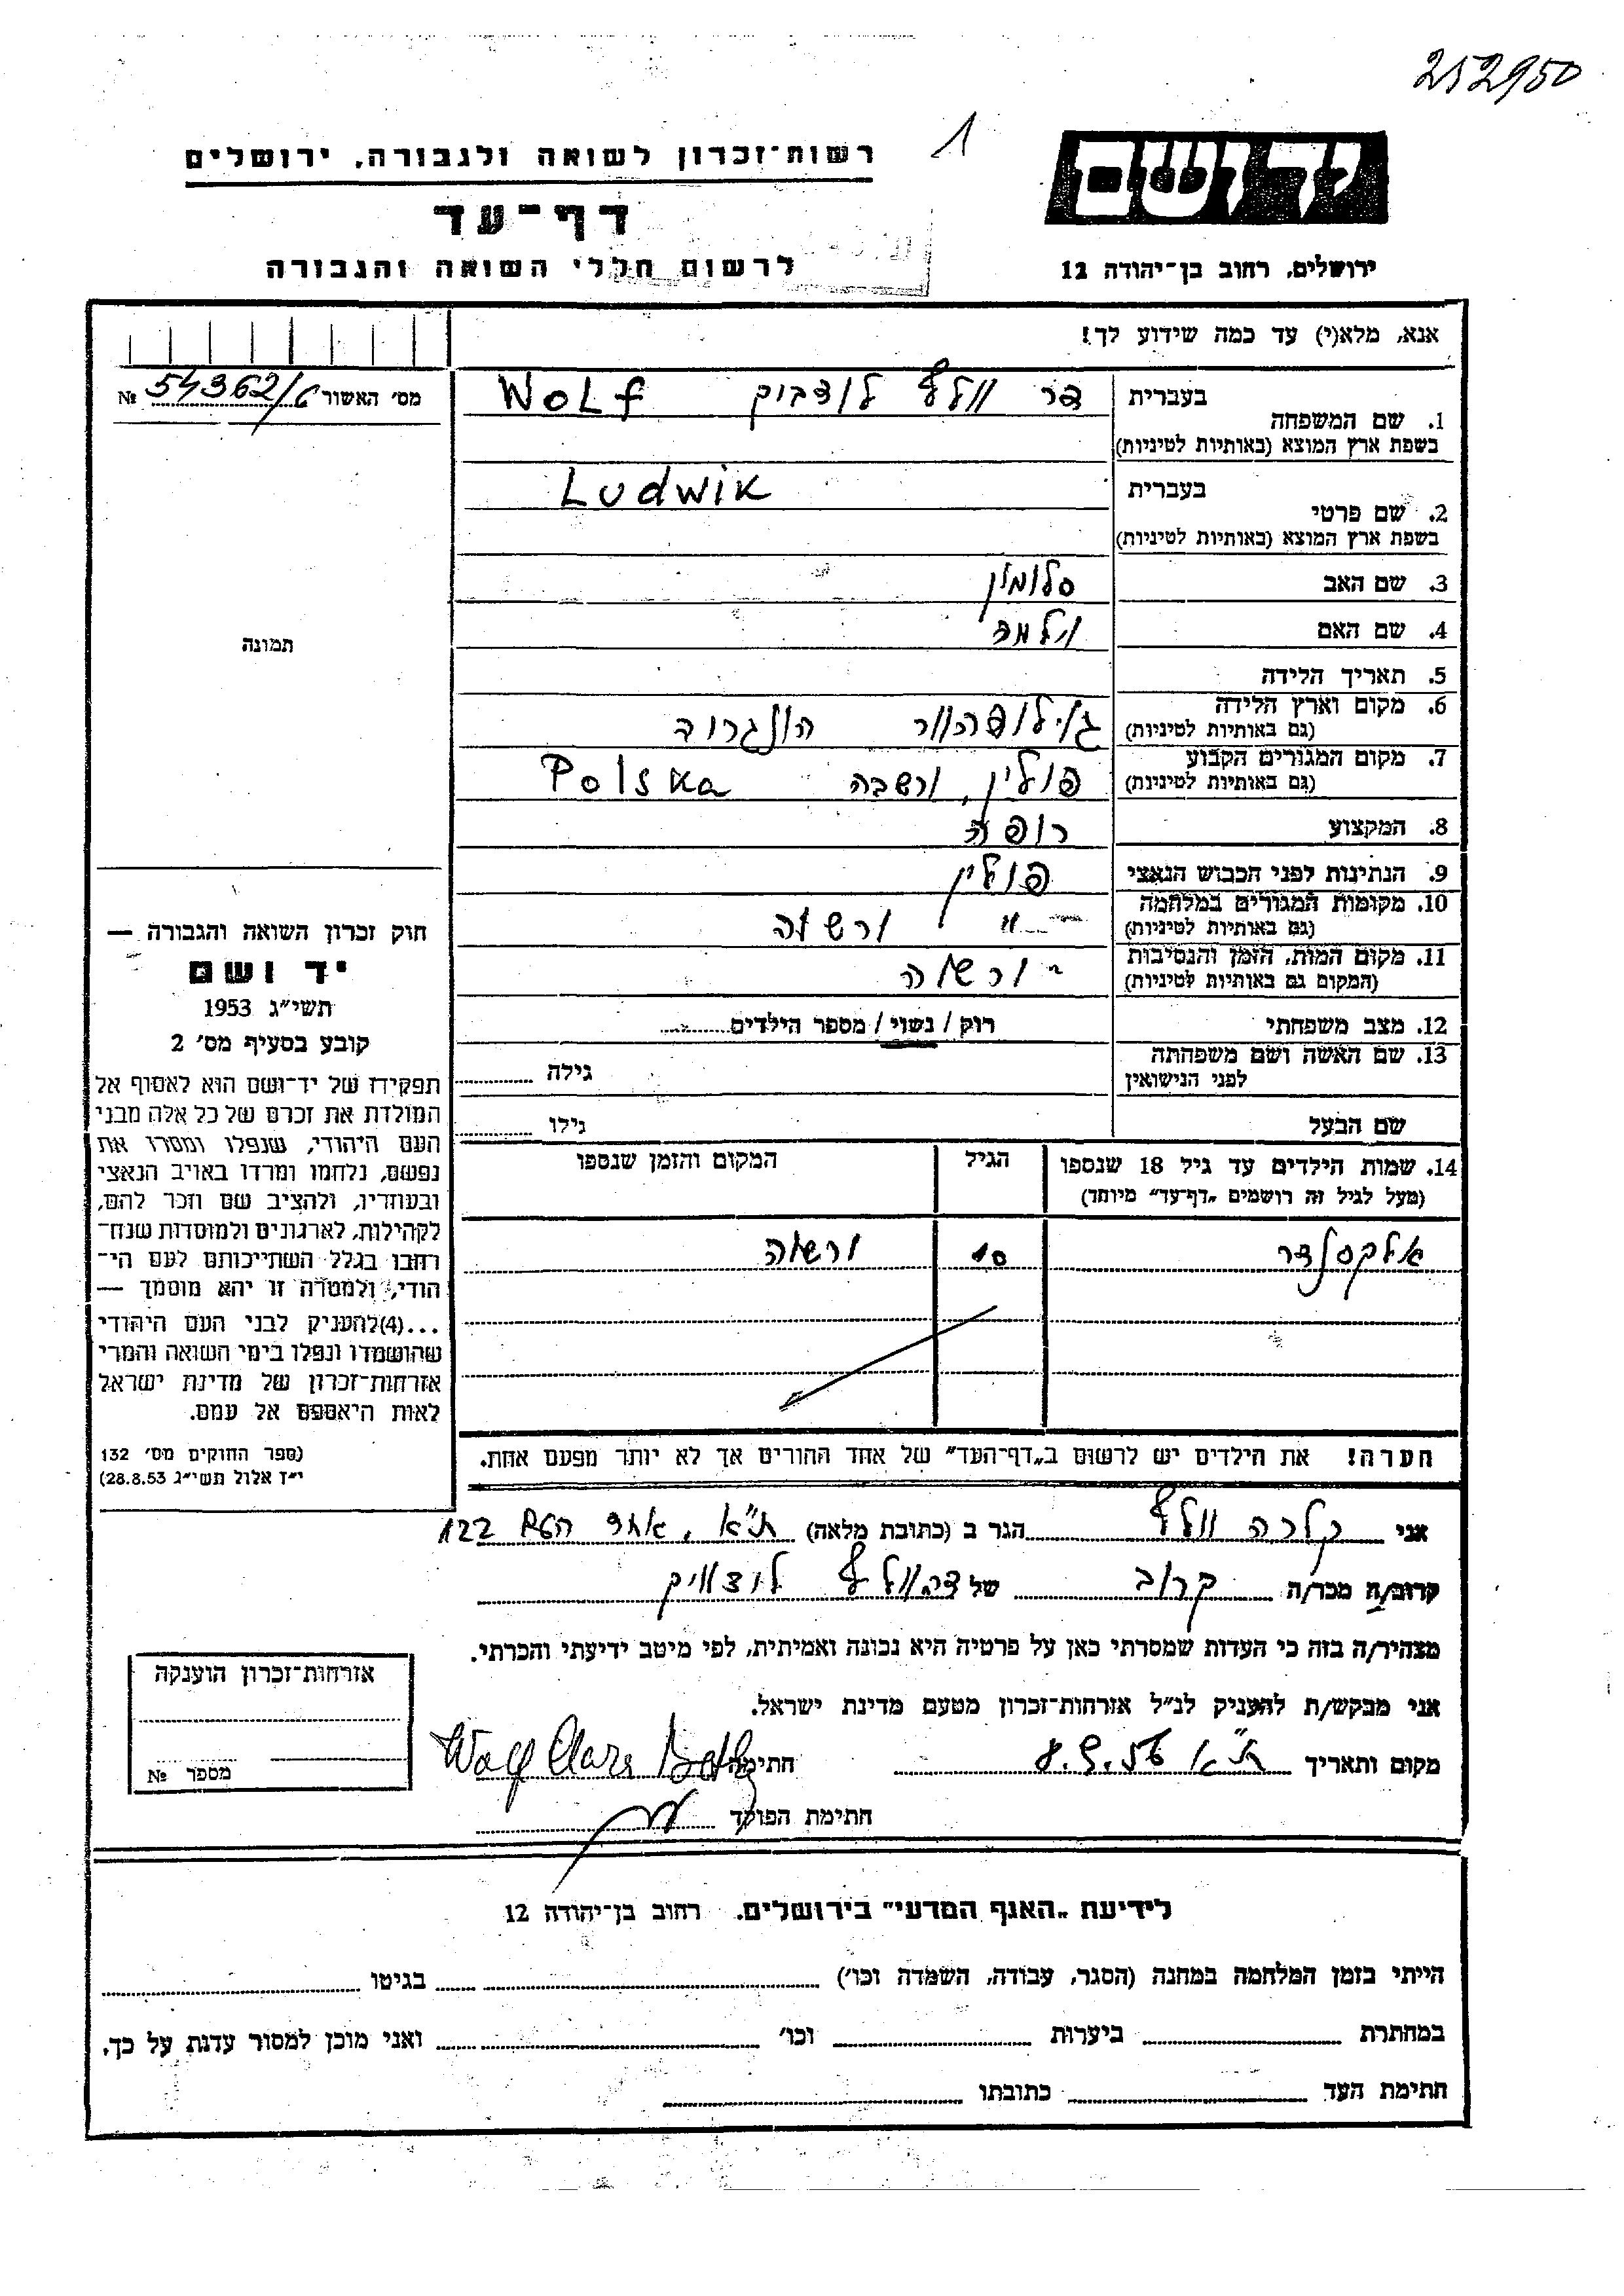 252950
1
יד ושם
רשות־זכרון לשואה ולגבורה, ירושלים
דף־עד
לרשום חללי השואה והגבורה
ירושלים, רחוב בן־יהודה 12
אנא, מלא(י) עד כמה שידוע לך!
מס׳ האשור 54362/c №
1. שם המשפחה בעברית דר וולף לודביק Wolf
בשפת ארץ המוצא (באותיות לטיניות)
2. שם פרטי בעברית Ludwik
בשפת ארץ המוצא (באותיות לטיניות)
3. שם האב סלומון
4. שם האם וילמה
5. תאריך הלידה
6. מקום וארץ הלידה
(גם באותיות לטיניות)
7. מקום המגורים הקבוע פולין, ורשבה Polska
(גם באותיות לטיניות)
8. המקצוע רופה
9. הנתינות לפני הכבוש הנאצי פולין
10. מקומות המגורים במלחמה –״– ורשוה
(גם באותיות לטיניות)
11. מקום המות, הזמן והנסיבות ורשוה
(המקום גם באותיות לטיניות)
12. מצב משפחתי רוק / נשוי / מספר הילדים
13. שם האשה ושם משפחתה גילה
לפני הנישואין
שם הבעל גילו
14. שמות הילדים עד גיל 18 שנספו הגיל המקום והזמן שנספו
(מעל לגיל זה רושמים „דף־עד״ מיוחד)
אלקסנדר 10 ורשוה
הערה! את הילדים יש לרשום ב„דף־העד״ של אחד ההורים אך לא יותר מפעם אחת.
תמונה
חוק זכרון השואה והגבורה —
יד ושם
תשי״ג 1953
קובע בסעיף מס׳ 2
תפקידו של יד־ושם הוא לאסוף אל
המולדת את זכרם של כל אלה מבני
העם היהודי, שנפלו ומסרו את
נפשם, נלחמו ומרדו באויב הנאצי
ובעוזריו, ולהציב שם וזכר להם,
לקהילות, לארגונים ולמוסדות שנח־
רבו בגלל השתייכותם לעם הי־
הודי, ולמטרה זו יהא מוסמך —
...(4)להעניק לבני העם היהודי
שהושמדו ונפלו בימי השואה והמרי
אזרחות־זכרון של מדינת ישראל
לאות היאספם אל עמם.
(ספר החוקים מס׳ 132
י״ז אלול תשי״ג 28.8.53)
אני קלרה וולף הגר ב (כתובת מלאה) ת״א, אחד העם 122
קרוב/ה מכר/ה קרוב של דר. וולף לודוויק
מצהיר/ה בזה כי העדות שמסרתי כאן על פרטיה היא נכונה ואמיתית, לפי מיטב ידיעתי והכרתי.
אני מבקש/ת להעניק לנ״ל אזרחות־זכרון מטעם מדינת ישראל.
מקום ותאריך ת״א 8.9.56 חתימה Wolf Clara
חתימת הפוקד
אזרחות־זכרון הוענקה
מספר №
לידיעת „האגף המדעי״ בירושלים. רחוב בן־יהודה 12
הייתי בזמן המלחמה במחנה (הסגר, עבודה, השמדה וכו׳) בגיטו
במחתרת ביערות וכו׳ ואני מוכן למסור עדות על כך.
חתימת העד כתובתו